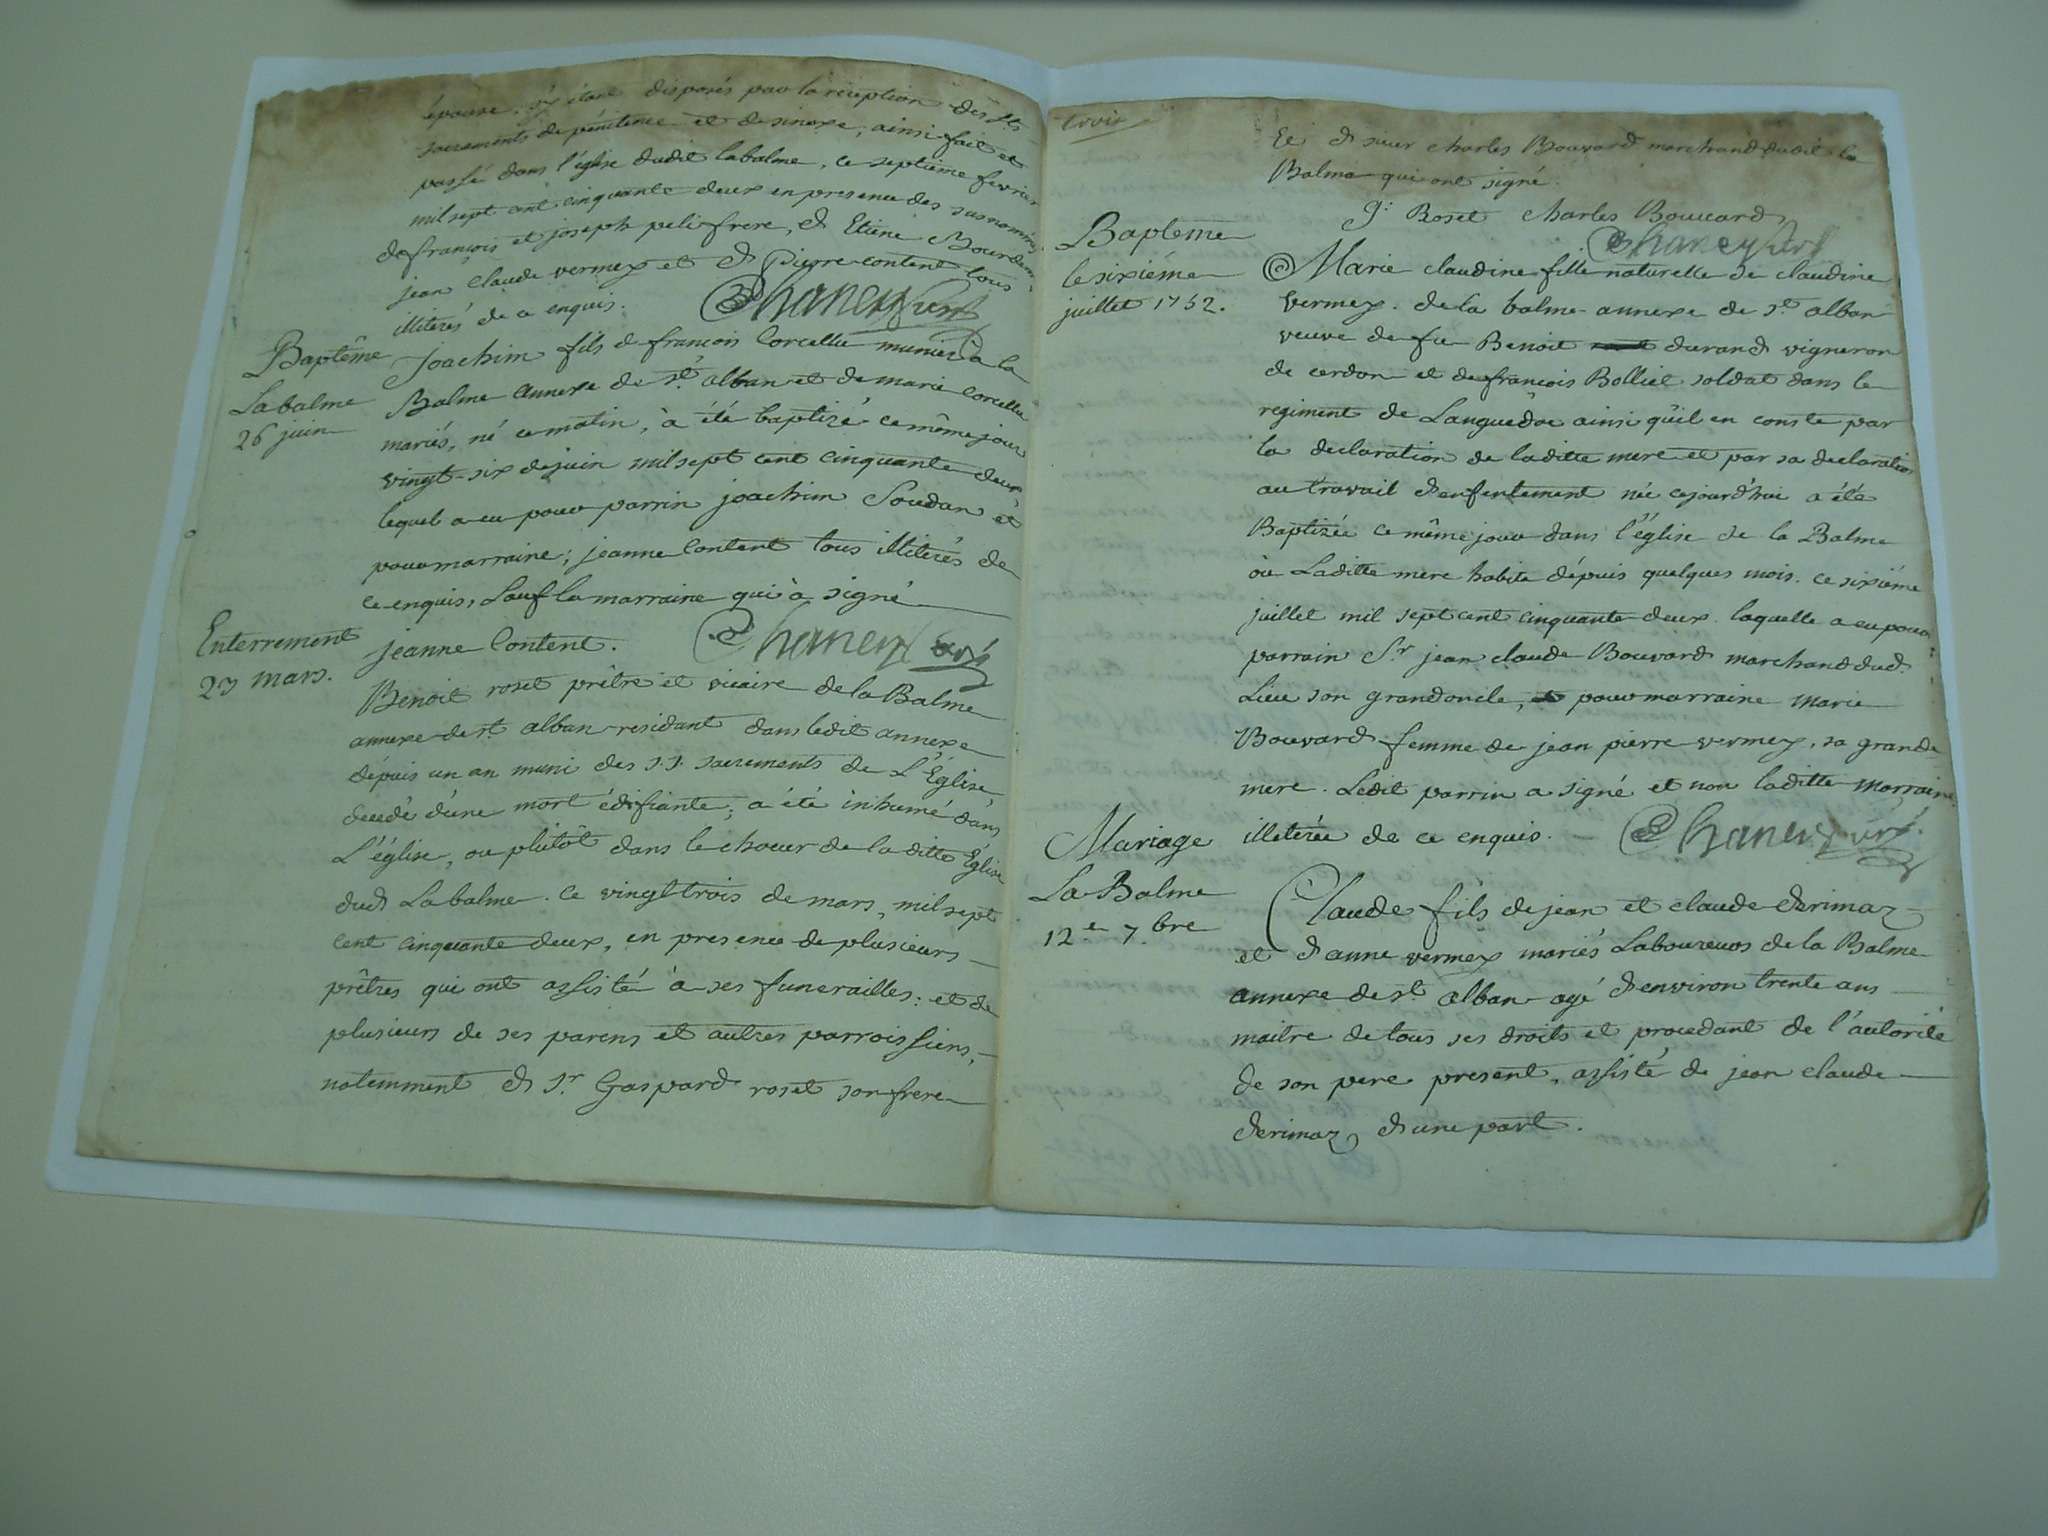 épouse. s'y étant disposés par la réception des sts
sacrements de pénitence et ainsi fait et
passé dans l'église dudit labalme, ce septième fevrier
mil sept cent cinquante deux en presence des susnommés
de françois et joseph frere, d Etiene
jean claude vermex et d Pierre content tous
illiterés de ce enquis.
Baptême
La balme
26 juin
Joachim fils d françois Corcellu munier à la
Balme annexe de st alban et de marie Corcellu
mariés, né ce matin, à été baptizé ce même jour
vingt-six de juin mil sept cent cinquante deux
lequel a eu pour parrin joachim Soudan et
pour marraine; jeanne Content tous illiterés de
ce enquis, Sauf la marraine qui à signé
jeanne Content.
Enterrement
23 mars.
Benoit roset prêtre et vicaire de la Balme
annexe de st alban residant dans ledit annexe
dépuis un an muni des s.s. sacrements de L'Église
decedé d'une mort édifiante, a été inhumé dans
L'église, ou plûtôt dans le choeur de la ditte Église
dud La balme. Ce vingt trois de mars, mil sept
cent cinquante deux, en presence de plusieurs
prêtres qui ont assisté à ses funerailles: et de
plusieurs de ses parens et autres parroissiens,
notemment d Sr. Gaspard roset son frere
trois
Et d sieur charles Bouvard marchand dudit la
Balme qui ont signé.
g: Roset Charles Bouvard
Baptême
le sixiéme
juillet 1752.
Marie claudine fille naturelle de claudine
vermex. de la balme annexe de st alban
veuve de fu Benoit durand vigneron
de cerdon et de françois Bolliet soldat dans le
regiment de Languedoc ainsi qu'il en conste par
la declaration de laditte mere et par sa declaration
au travail d'enfentement née cejourd'hui a été
Baptizée ce même jour dans l'église de la Balme
où Laditte mere habite dépuis quelques mois. ce sixiéme
juillet mil sept cent cinquante deux. laquelle a eu pour
parrain Sr jean claude Bouvard marchand dud
Lieu son grand oncle, pour marraine marie
Bouvard femme de jean pierre vermex, sa grande
mere. Ledit parrin a signé et non laditte marraine
illiterée de ce enquis.
Mariage
La Balme
12e 7.bre
Claude fils de jean et claude derimaz
et d'anne vermex mariés Laboureurs de la Balme
annexe de st alban agé d'environ trente ans
maitre de tous ses droits et procedant de l'autorité
de son pere present, assisté de jean claude
derimaz d'une part.